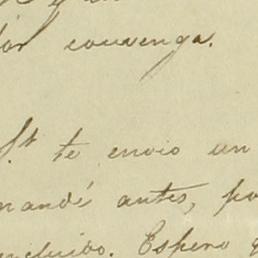 convenga.
te envio un
mandé antes, po
incluido. Espero q